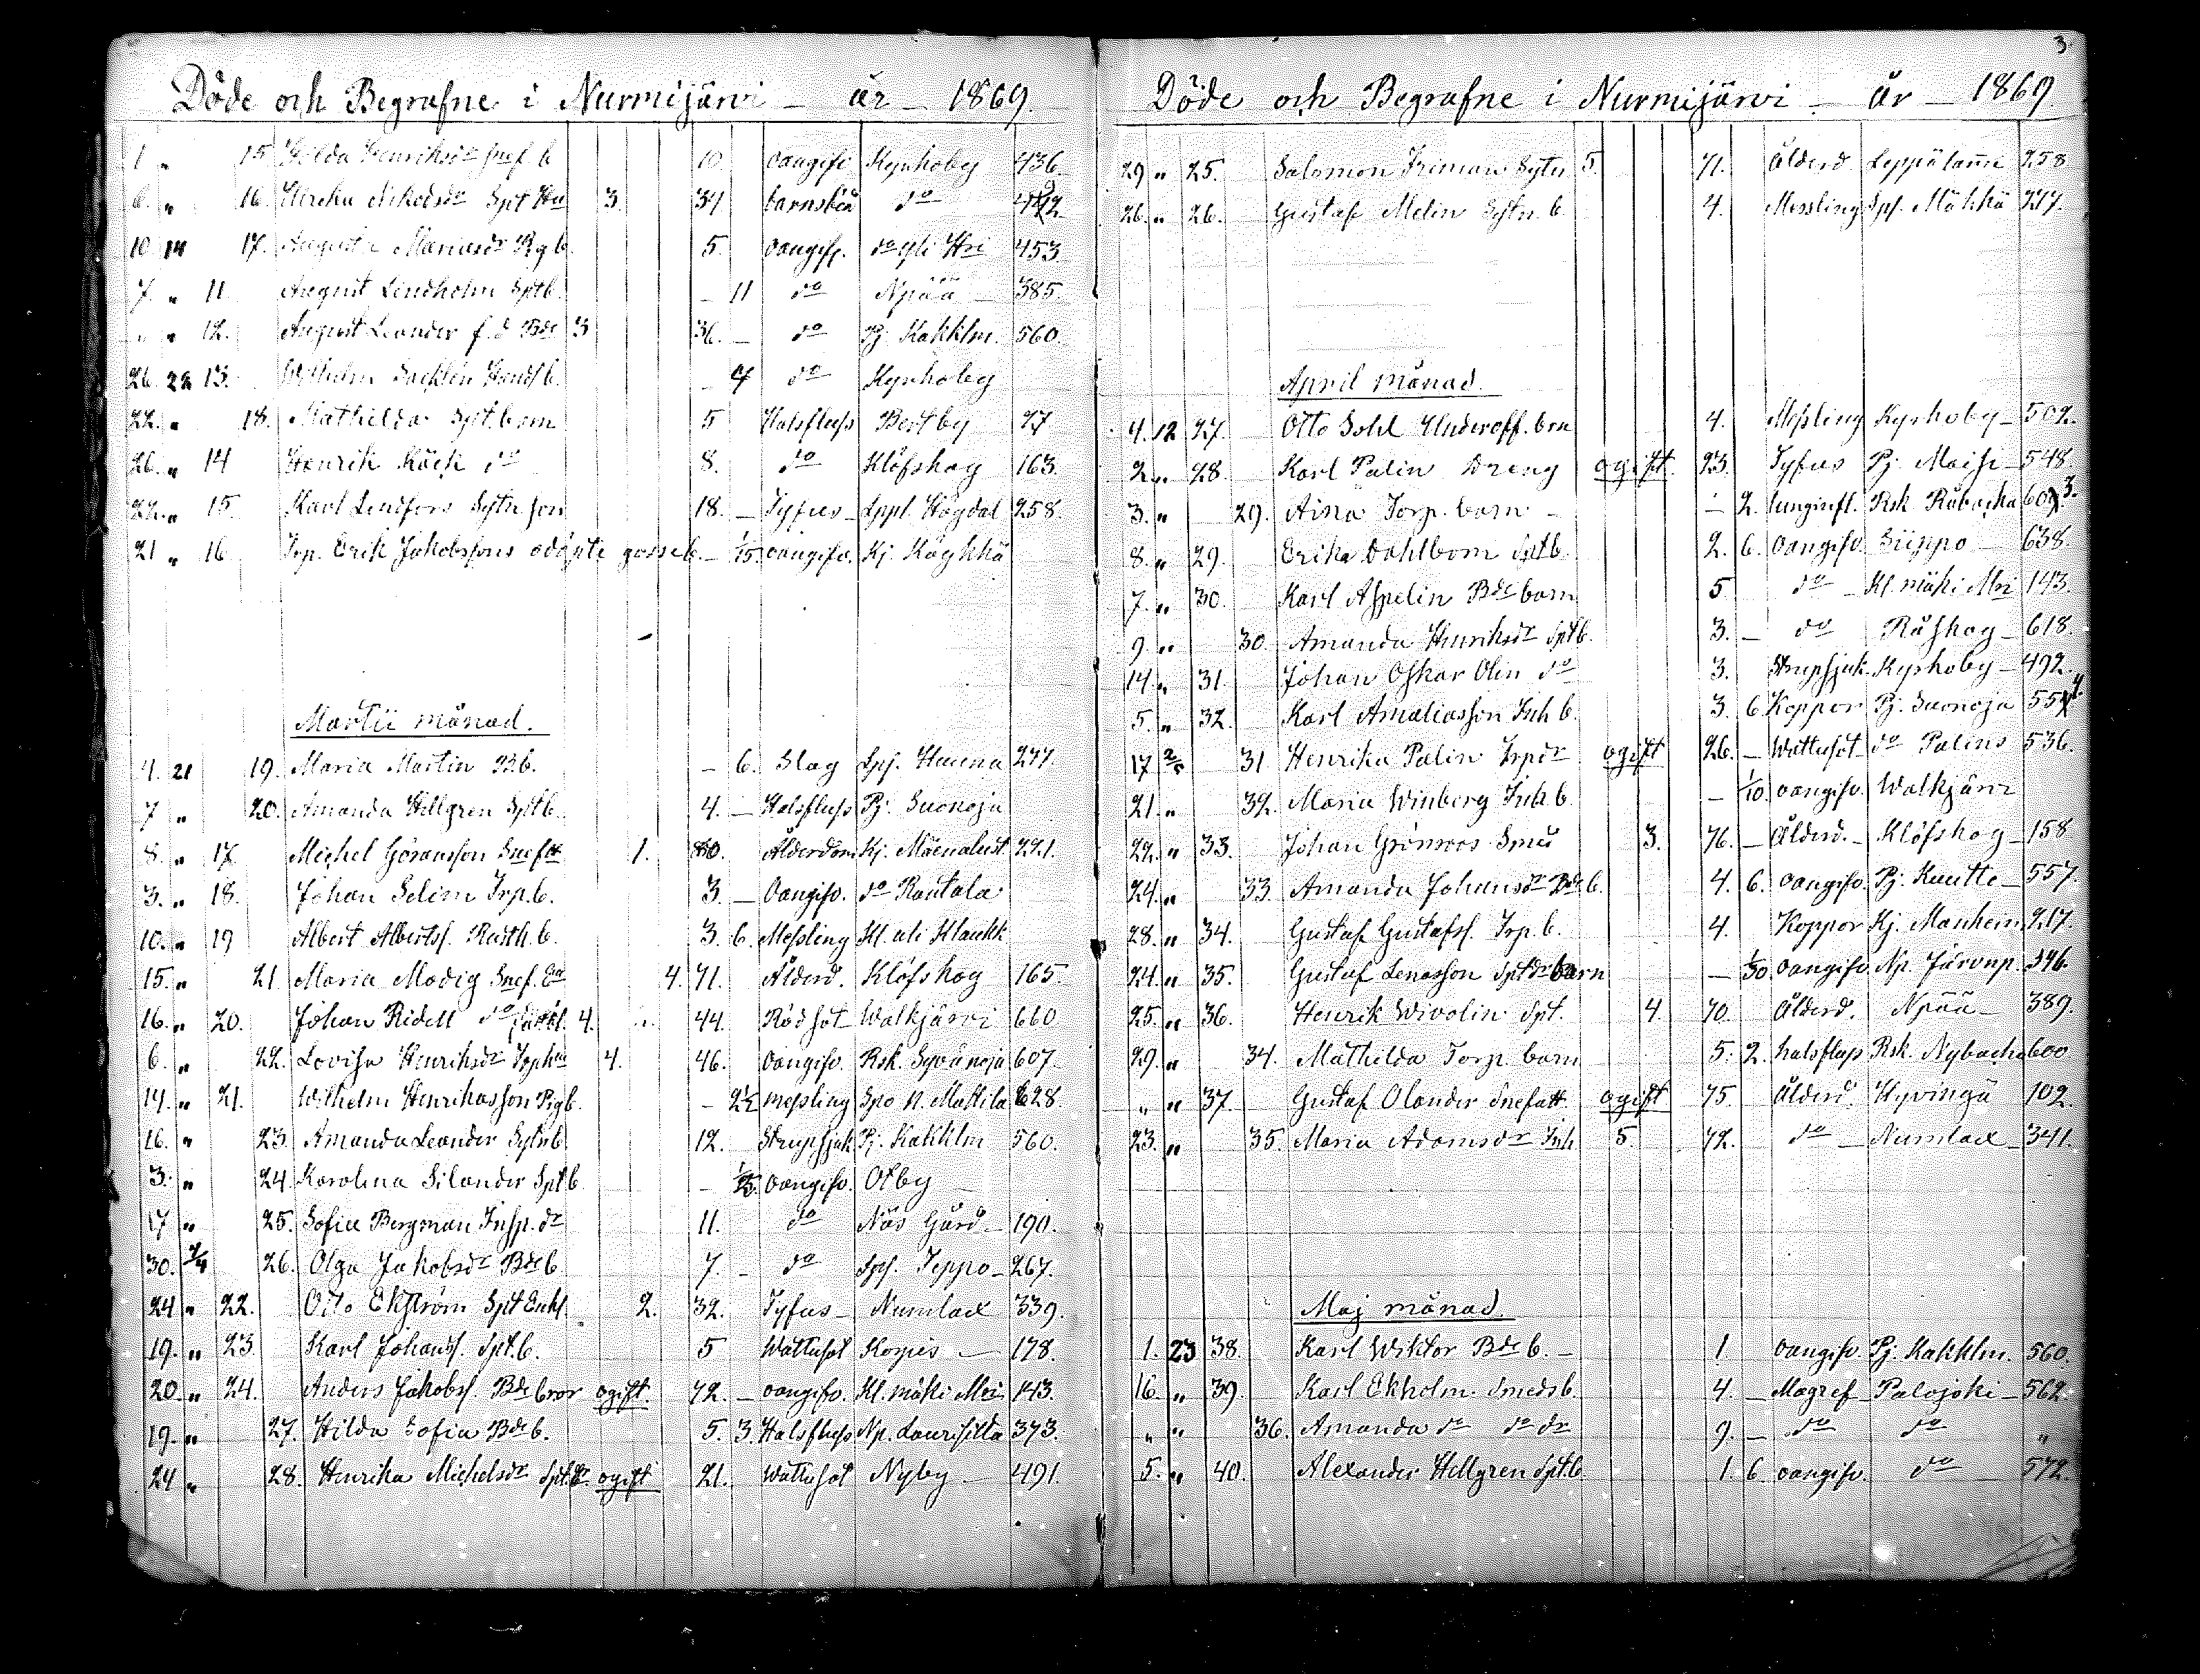 Döde och Begrafne i Nurmijärvi - år - 1869.
1 " 15 Hilda Henriksdr b 10 oangifv Kyrkoby 436
6. " 16. Ulrika 3. 34 barnsbörd do
10 14 17. Mariasdr Pig b. 5. oangifv. do yli Hri 453
7. " 11 August Lindholm Sptb. - 11 do Npää 385.
" " 12. August Leander f. d Bde 3 36. - do Pj Kakklm. 560.
26. 28 13. Wilhelm b. - 4 do Kyrkoby
22. " 18. Mathilda Spt. barn 5 Halsfluss Bertby 27
26. " 14 Henrik Röck do 8. do Klöfskog 163.
22. " 15. Karl Lindfors Sytn son 18. - Tyfus - Lppl. Högdal 258.
21 " 16 Trp. Erik Jakobssons odöpte gosseb. - 1/15. oangifv. Kj. Köykkä
Martii månad.
4. 21 19. Maria Martin B.b. - 6. Slag Spj. Huvna 277.
7 " 20. Amanda Hellgren Sptb. 4. - Halsfluss Pj. Suonoja
8. " 17. Michel Göransson Snef 1. 80. Ålderdom Kj. 221.
3. " 18. Johan Selim Trp.b. 3. - Oangifv. do Rautala
10. " 19 Albert Albertss. Rusth. b. 3. 6. Messling Kl. ali Klaukk
15. " 21 Maria Modig Snef. Ea 4. 71. Ålderd. Klöfskog 165.
16. " 20. Johan Ridell do 4. 44. Rödsot Walkjärvi 660
6. " 22. Lovisa Henriksdr Torp hu 4. 46. oangifv. Rsk. Syvänoja 607.
14. " 21. Wilhelm Henrikasson Pigb. - 2½ messling Spo N. Mattila 628.
16. " 23. Amanda Leander Sytnb 12. Strupsjuk Pj. Kakklm 560.
3. " 24. Karolina Silander Spt b. - oangifv. Otby
17 " 25. Sofia Bergman Insp. dr 11. do Näs Gård - 190.
30. 4/4 26. Olga Jakobsdr Bde b. 7. - do Spj. Teppo - 267.
24 " 22. Otto Ekström Spt Enkl. 2. 32. Tyfus - Numlax 339.
19. " 23. Karl Johanss. Spt. b. 5 Wattusot Korpis - 178.
20. " 24. Anders Jakobss. Bde bror ogift. 72. - oangifv. Kl. mäki Mri 143.
19. " 27. Hilda Sofia Bde b. 5. 3. Halsfluss Np. Laurisilta 373.
24 " 28. Henrika Michelsdr Spt. dr ogift 21. Wattusot Nyby - 491.
3.
Döde och Begrafne i Nurmijärvi - år - 1869
29 " 25. Salomon Friman Sytn 5. 71. Ålderd. Leppälamm 258
26. " 26. Gustaf Melin Sytn b. 4. Messling Spj. Mäkkä 277.
April månad.
4. 12 27. Otto Sohl Underoff. brn 4. Messling Kyrkoby - 502.
2 " 28. Karl Palin Dreng ogift. 23. Tyfus Pj. Maisi - 548
3. " 29. Aina Torp. barn - - 2. Rsk Råbacka 603.
8. " 29. Erika Dahlbom Sptb. 2. 6. oangifv. Siippo - 638.
7. " 30. Karl Aspelin Bde barn 5 do - Kl. mäki Mri 143.
9. " 30. Amanda Henriksdr Sptb. 3. - do Råskog - 618.
14. " 31. Johan Oskar Olin do 3. Strupsjuk. Kyrkoby - 492.
5. " 32. Karl Amaliasson Inh b. 3. 6. Koppor Pj. Suonoja 554
17 2/5 31 Henrika Palin Trpdr ogift 26. - Wattusot do Palins 536.
21. " 32. Maria Winberg Inh. b. - 1/10. oangifv. Walkjärvi
22. " 33. Johan Grönroos Smed 3. 76. - Ålderd. - Klöfskog - 158
24. " 33. Amanda Johansdr Bde. b. 4. 6. oangifv. Pj. Kuutto - 557.
28. " 34. Gustaf Gustafss. Trp b. 4. Koppor Kj. Manheim 217.
24. " 35. Gustaf Lenasson Sptdr barn - 1/30. oangifv Np. Järvnp. 396.
25. " 36. Henrik Wivolin Spt. 4 70. Ålderd. Npää - 389.
29. " 34. Mathilda Torp. barn 5. 2. halsfluss Rsk. Nybacka 600
" " 37 Gustaf Olander Snefatt. ogift 75. Ålderd. Hyvingä 102.
23. " 35. Maria Adamsdr Inh 5. 72. do - Numlax - 341.
Maj månad.
1. 23 38. Karl Wiktor Bde b. - 1 oangifv. Pj. Kakklm. 560.
16. " 39. Karl Ekholm Smedsb. 4. - Magref Palojoki - 562.
" " 36. Amanda do do dr 9. - do do "
5. " 40. Alexander Hellgren Spt. b 1. 6 oangifv. do - 572.